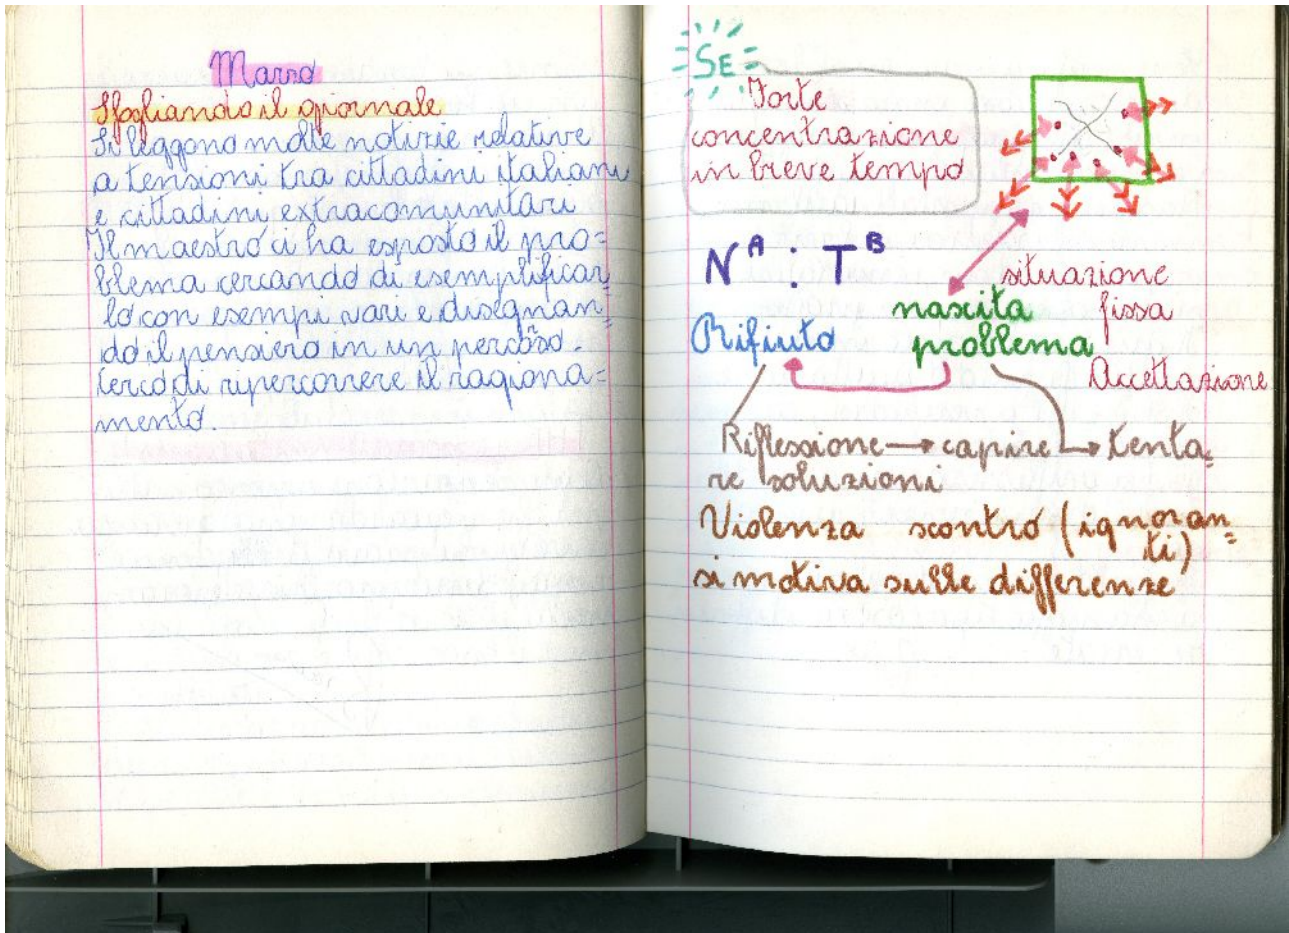 Marzo
Sfogliando il giornale
Si leggono molte notizie relative
a tensioni tra cittadini italiani
e cittadini extracomunitari
Il maestro ci ha esposto il pro=
blema cercando di esemplificar=
lo con esempi vari e disegnan=
do il pensiero in un percorso.
Cerco di ripercorrere il ragiona=
mento.
SE
Forte
concentrazione
in breve tempo
Nᴬ : Tᴮ
situazione
fissa
nascita
problema
Rifiuto
Accettazione
Riflessione → capire → tenta=
re soluzioni
Violenza scontro (ignoran=
ti)
si motiva sulle differenze